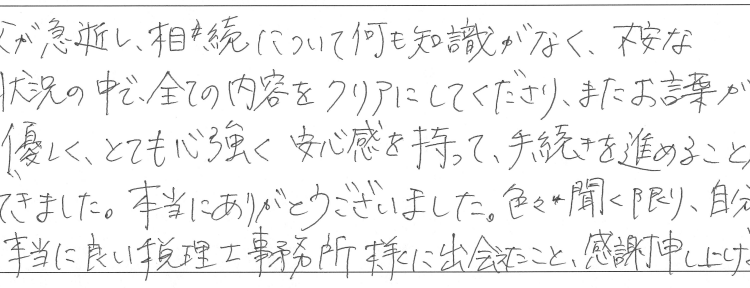 が急逝し、相続について何も知識がなく、不安な
状況の中で、全ての内容をクリアにしてくださり、またお言葉が
優しく、とても心強く 安心感を持って、手続きを進めること
できました。本当にありがとうございました。色々聞く限り、自分
本当に良い税理士事務所様に出会えたこと、感謝申し上げ